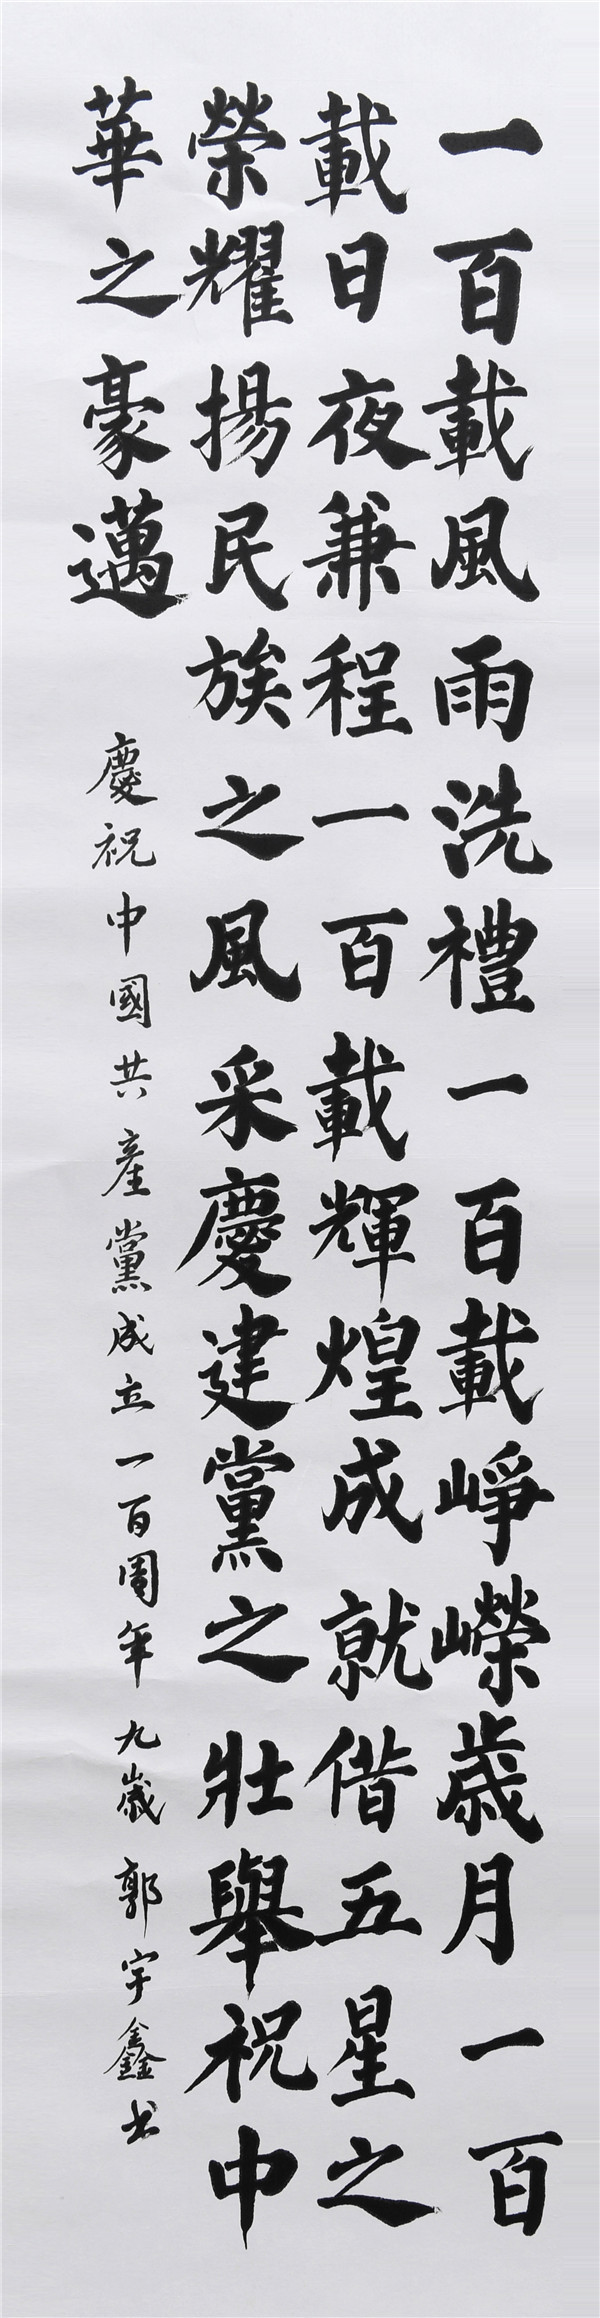 一百載風雨洗禮一百載崢嶸歲月一百
載日夜兼程一百載輝煌成就借五星之
榮耀揚民族之風采慶建黨之壯舉祝中
華之豪邁
慶祝中國共產黨成立一百周年九歲郭宇鑫书